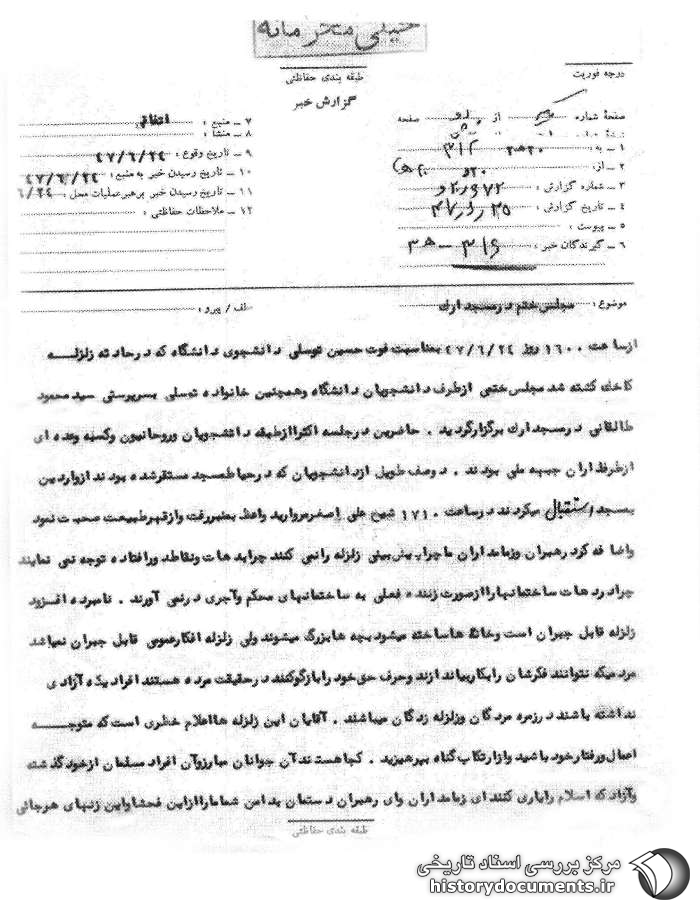 خیلی محرمانه
طبقه بندی حفاظتی
درجه فوریت
گزارش خبر
صفحهٔ شماره از صفحه
۱ ـ به: ۳۱۲
۲ ـ از: ۲۰
۳ ـ شماره گزارش:
۴ ـ تاریخ گزارش:
۵ ـ پیوست:
۶ ـ گیرندگان خبر: ۳۱۶ ـ
۷ ـ منبع:
۸ ـ منشأ:
۹ ـ تاریخ وقوع: ۴۷/۶/۲۴
۱۰ ـ تاریخ رسیدن خبر به منبع: ۴۷/۶/۲۴
۱۱ ـ تاریخ رسیدن خبر برهبرعملیات محل: ۶/۲۴
۱۲ ـ ملاحظات حفاظتی:
موضوع: مجلس ختم در مسجد ارك
عطف / پیرو:
ازساعت ۱۶۰۰ روز ۴۷/۶/۲۴ بمناسبت فوت حسین توسلی دانشجوی دانشگاه که درحادثه زلزله
کاخک کشته شد مجلس ختمی ازطرف دانشجویان دانشگاه وهمچنین خانواده توسلی بسرپرستی سید محمود
طالقانی درمسجد ارك برگزارگردید . حاضرین درجلسه اکثرا ازطبقه دانشجویان وروحانیون وکسبه وعده ای
ازطرفداران جبهه ملی بودند . دوصف طویل ازدانشجویان که درحیاط مسجد مستقرشده بودند ازواردین
بمسجد استقبال میکردند درساعت ۱۷۱۰ شیخ علی اصغر مروارید واعظ بمنبررفت وازقهرطبیعت صحبت نمود
واضافه کرد رهبران وزمامداران ما چرا پیش بینی زلزله رانمی کنند چرا بدهات ونقاط دورافتاده توجه نمی نمایند
چرا دردهات ساختمانهارا ازصورت زننده فعلی به ساختمانهای محکم وآجری درنمی آورند . نامبرده افزود
زلزله قابل جبران است وخانه هاساخته میشود بچه ها بزرگ میشوند ولی زلزله افکارعمومی قابل جبران نمیباشد
مردمیکه نتوانند فکرشان رابکار بیاندازند وحرف حق خود رابازگوکنند درحقیقت مرده هستند افراد یکه آزادی
نداشته باشند درزمره مردگان وزلزله زدگان میباشند . آقایان این زلزله ها اعلام خطری است که متوجه
اعمال ورفتار خود باشید وازارتکاب گناه بپرهیزید . کجا هستند آن جوانان مبارز وآن افراد مسلمان ازخود گذشته
وآزاد که اسلام رایاری کنند ای زمامداران وای رهبران دستمان بدامن شما مارا ازاین فحشا واین زنهای هرجائی
طبقه بندی حفاظتی
مرکز بررسی اسناد تاریخی
historydocuments.ir